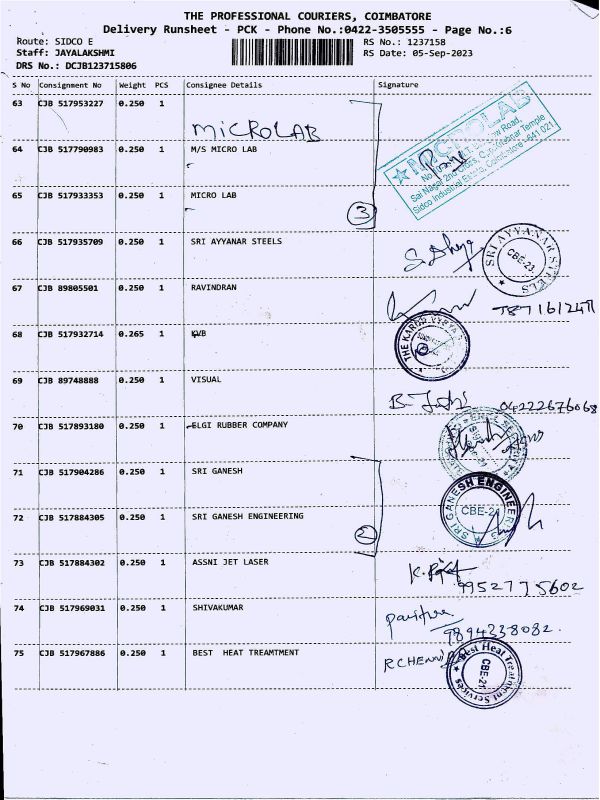 THE PROFESSIONAL COURIERS, COIMBATORE
Delivery Runsheet - PCK - Phone No.:0422-3505555 - Page No.:6
Route: SIDCO E
RS No.: 1237158
Staff: JAYALAKSHMI
RS Date: 05-Sep-2023
DRS No.: DCJB123715806
S No Consignment No Weight PCS Consignee Details Signature
63 CJB 517953227 0.250 1
MICROLAB
64 CJB 517790983 0.250 1 M/S MICRO LAB
MICROLAB
65 CJB 517933353 0.250 1 MICRO LAB
3
66 CJB 517935709 0.250 1 SRI AYYANAR STEELS
SRI AYYANAR STEELS
CBE-21
67 CJB 89805501 0.250 1 RAVINDRAN
68 CJB 517932714 0.265 1 KVB
THE KARUR VYSYA
69 CJB 89748888 0.250 1 VISUAL
04222676068
70 CJB 517893180 0.250 1 ELGI RUBBER COMPANY
71 CJB 517904286 0.250 1 SRI GANESH
SRI GANESH ENGINEERING
CBE-21
72 CJB 517884305 0.250 1 SRI GANESH ENGINEERING
2
73 CJB 517884302 0.250 1 ASSNI JET LASER
9952775602
74 CJB 517969031 0.250 1 SHIVAKUMAR
9894338082.
75 CJB 517967886 0.250 1 BEST HEAT TREAMTMENT
Best Heat Treatment Services
CBE-21